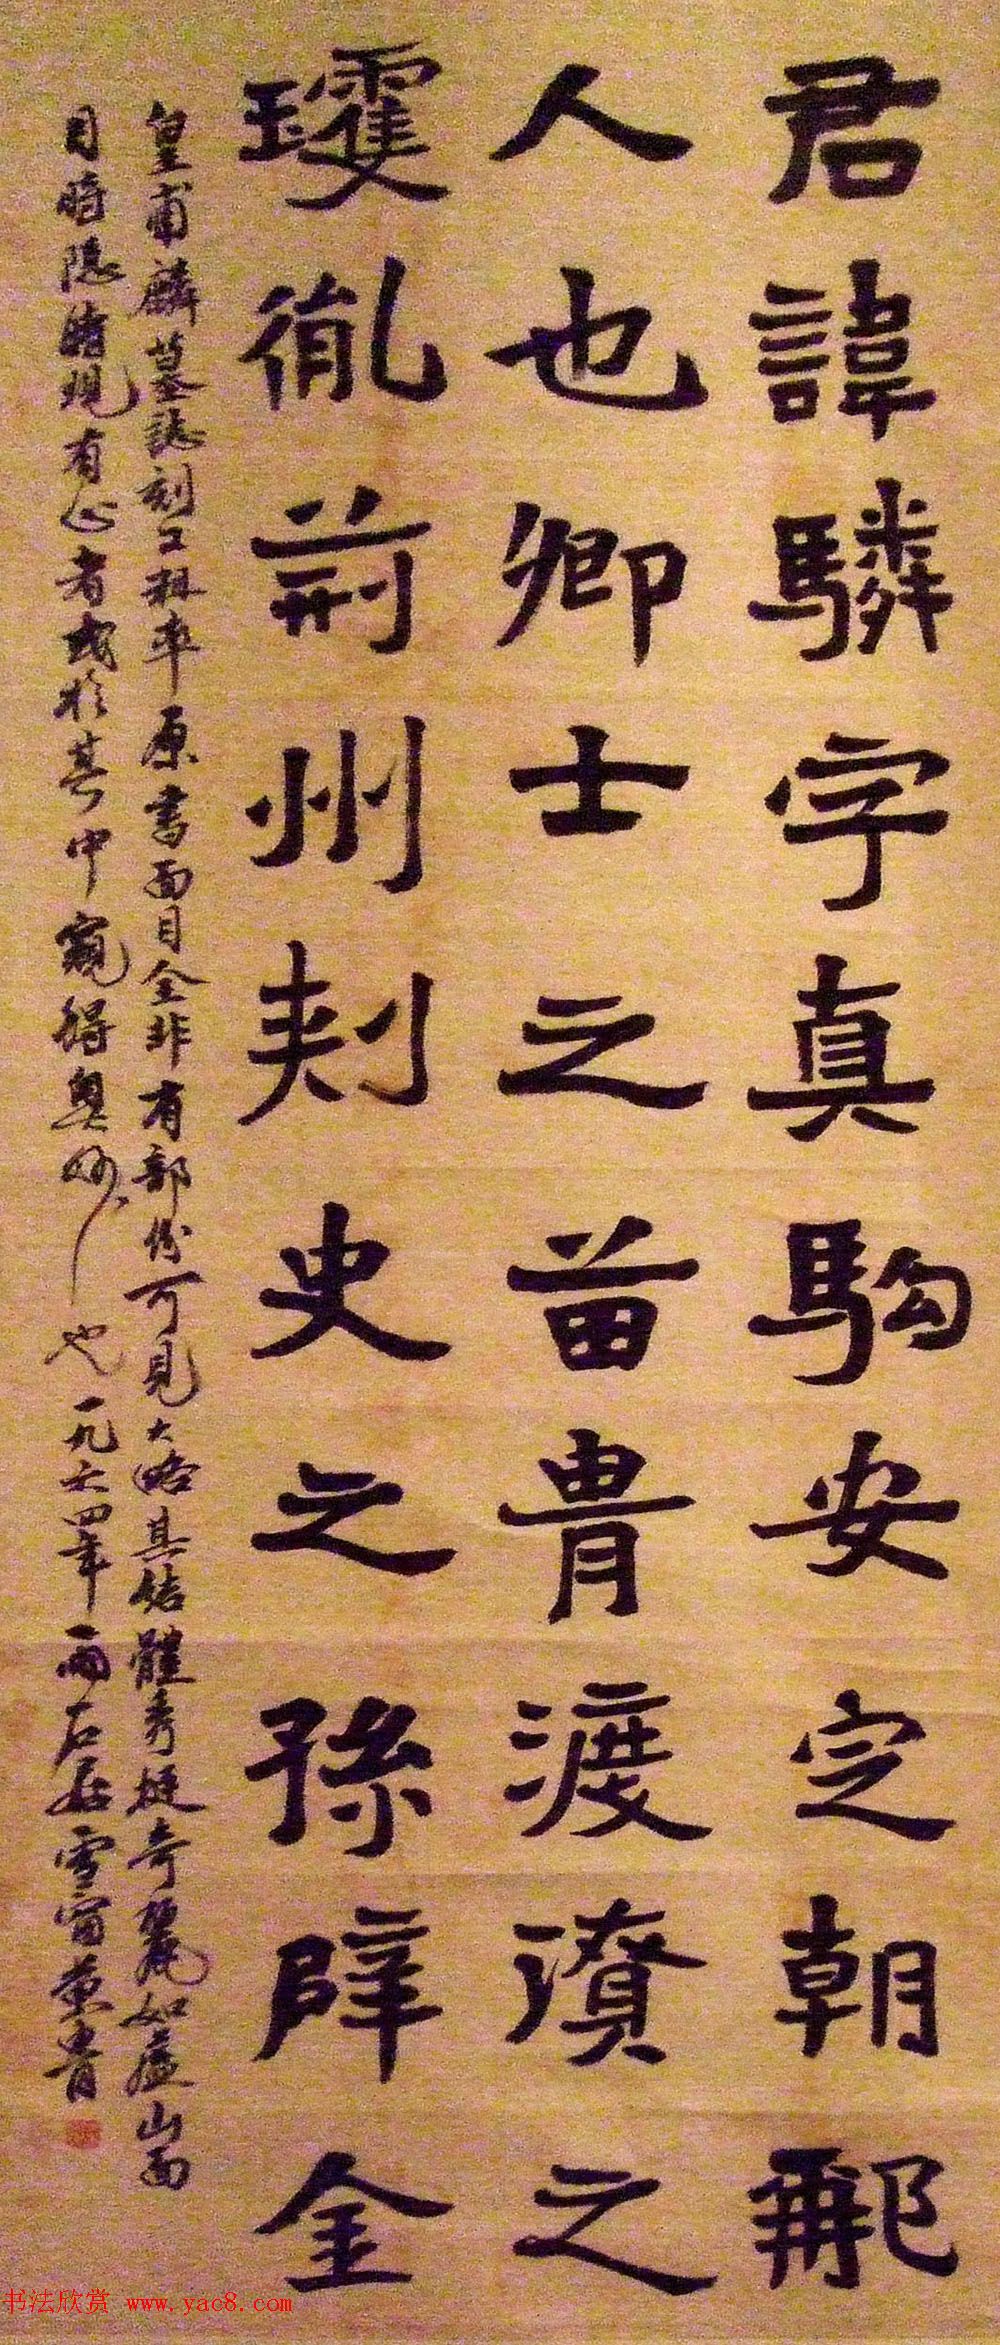 君諱驎字真駒安定朝那
人也卿士之苗胄渡瀆之
璦胤荊州刾史之孫辟金
皇甫麟墓誌刻工粗率原書面目全非有部份可見大略其結體秀挺奇麗如廬山面
目時隱時現有心者或於其中窺得奧妙也一九六四年雨石居雪窗
书法欣赏 www.yac8.com